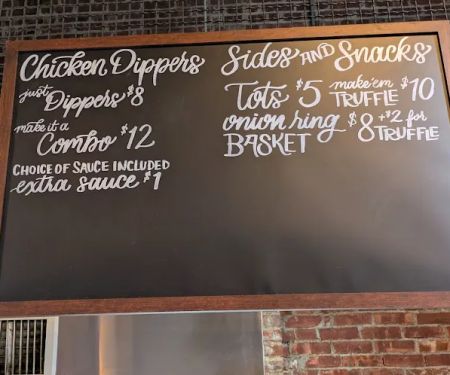 Chicken Dippers
just Dippers $8
make it a
Combo $12
CHOICE OF SAUCE INCLUDED
extra sauce $1
Sides AND Snacks
Tots $5 make'em TRUFFLE $10
onion ring BASKET $8 +$2 for TRUFFLE